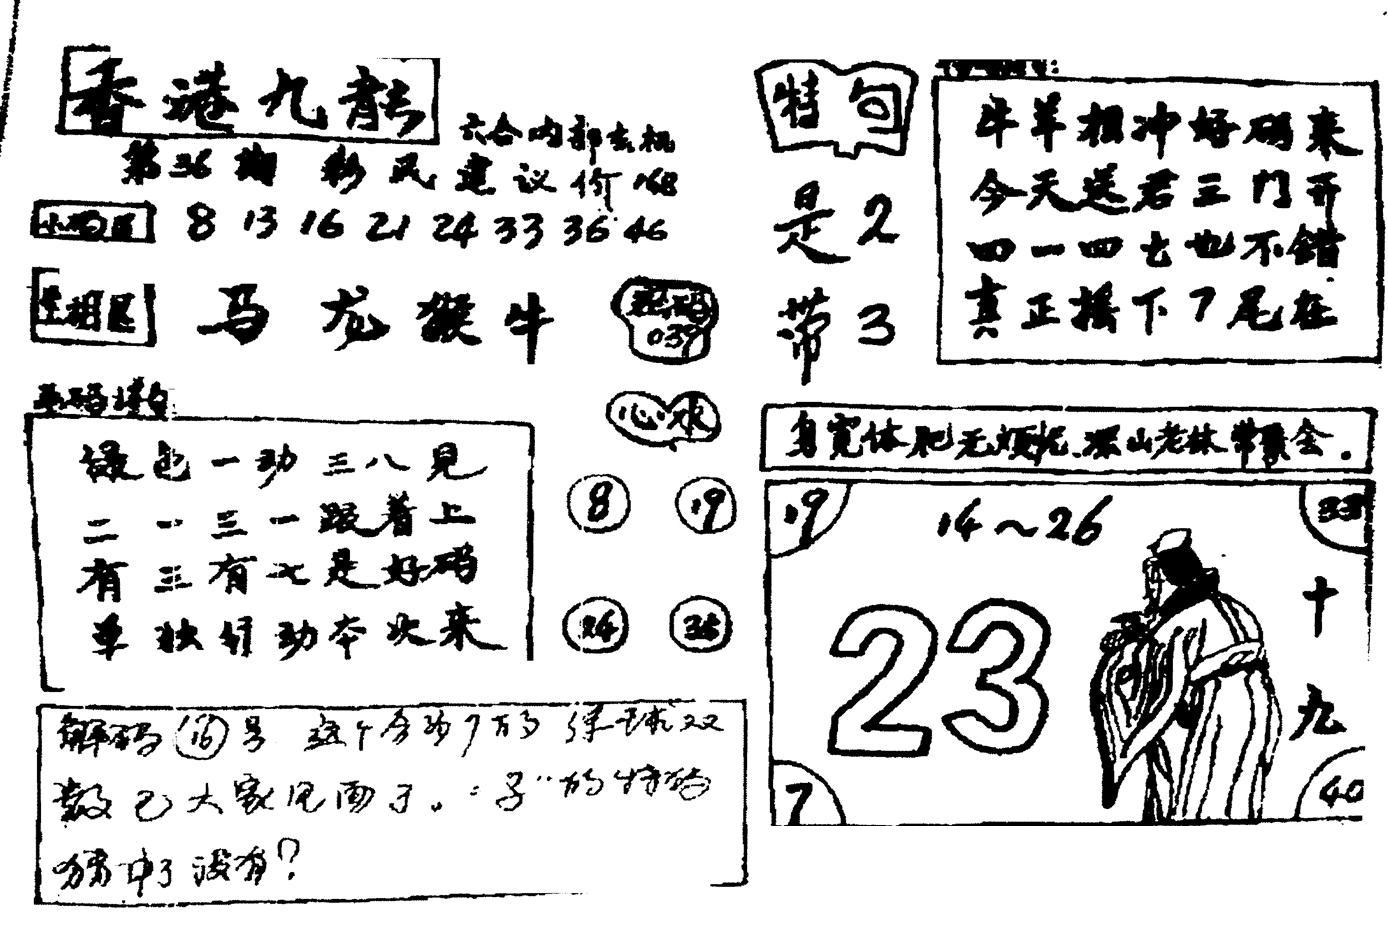 香港九龍
六合内部玄机
第36期 彩民建议价168
小码区 8 13 16 21 24 33 36 46
生肖区 马龙猴牛
密码
039
绿色一动三八見
二一三一跟着上
有三有七是好码
单独行动本次来
心水
8 19
24 36
解码16号 这个
双
数已大家见面了。"子"的特码
猜中了没有?
特句
是2
带3
牛羊相冲好码来
今天送君三门开
四一四七也不错
真正接下7尾在
身宽体肥无烦忧.深山老林常聚会.
19 14~26 33
23
十九
7 40